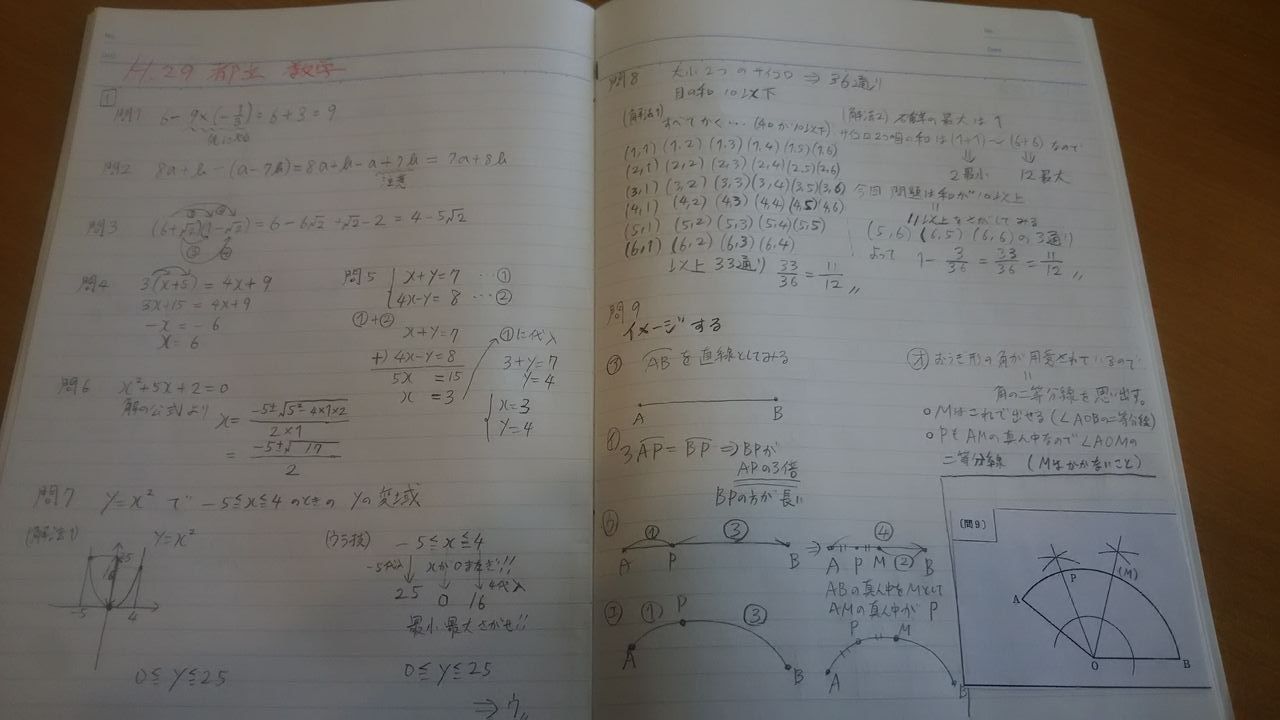 H.29 都立 数学
1
問1 6-9×(-1/3)=6+3=9
問2 8a+b-(a-7b)=8a+b-a+7b=7a+8b
注意
問3 (6+√2)(1-√2)=6-6√2+√2-2=4-5√2
問4 3(x+5)=4x+9
3x+15=4x+9
-x=-6
x=6
問5 x+y=7 …①
4x-y=8 …②
①+②
x+y=7
+) 4x-y=8
5x =15
x =3
①に代入
3+y=7
y=4
x=3
y=4
問6 x²+5x+2=0
解の公式より x= -5±√5²-4×1×2 / 2×1
= -5±√17 / 2
問7 y=x² で -5≦x≦4 のときの yの変域
(解法1) y=x²
25
16
-5 4
0≦y≦25
(ウラ技) -5≦x≦4
-5代入 xが0またぎ!! 4代入
25 0 16
最小最大さがせ!!
0≦y≦25
⇒ ウ〃
問8 大小2つのサイコロ ⇒ 36通り
目の和 10以下
(解法1) すべてかく… (和が10以下)
(1,1) (1,2) (1,3) (1,4) (1,5) (1,6)
(2,1) (2,2) (2,3) (2,4) (2,5) (2,6)
(3,1) (3,2) (3,3) (3,4) (3,5) (3,6)
(4,1) (4,2) (4,3) (4,4) (4,5) (4,6)
(5,1) (5,2) (5,3) (5,4) (5,5)
(6,1) (6,2) (6,3) (6,4)
以上 33通り 33/36=11/12〃
(解法2) 確率の最大は1
サイコロ2つの目の和は(1+1)~(6+6)なので
2最小 12最大
今回 問題は和が10以上
11以上をさがしてみる
(5,6) (6,5) (6,6)の3通り
よって 1-3/36=33/36=11/12〃
問9
イメージする
ア AB を直線としてみる
A B
イ 3AP=BP ⇒BPが
APの3倍
BPの方が長い
ウ ① ③
A P B
⇒ ④
A P M ② B
ABの真ん中をMとして
AMの真ん中が P
エ ① P ③
A B
P M
A B
オ おうぎ形の角が用意されているので
角の二等分線を思い出す。
○Mはこれで出せる(∠AOBの二等分線)
○PもAMの真ん中なので∠AOMの
二等分線 (Mはかかないこと)
〔問9〕
P (M)
A
O B